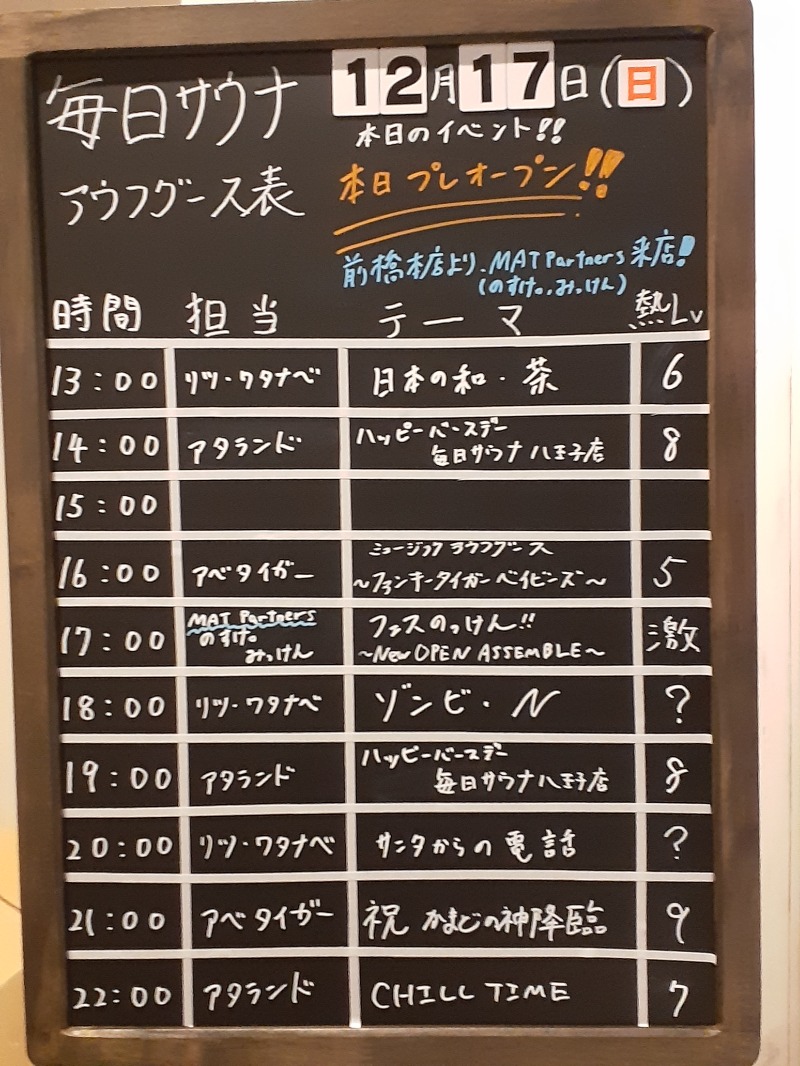 毎日サウナ 12月17日(日)
本日のイベント!!
アウフグース表 本日プレオープン!!
前橋本店より、MAT Partners 来店!
(のすけ。、みっけん)
時間 担当 テーマ 熱Lv
13:00 リツ・ワタナベ 日本の和・茶 6
14:00 アタランド ハッピーバースデー
毎日サウナ八王子店 8
15:00
16:00 アベタイガー ミュージックアウフグース
~ファンキータイガーベイビーズ~ 5
17:00 MAT Partners
のすけ。
みっけん フェスのっけん!!
~New OPEN ASSEMBLE~ 激
18:00 リツ・ワタナベ ゾンビ・N ?
19:00 アタランド ハッピーバースデー
毎日サウナ八王子店 8
20:00 リツ・ワタナベ サンタからの電話 ?
21:00 アベタイガー 祝 かまどの神降臨 9
22:00 アタランド CHILL TIME 7